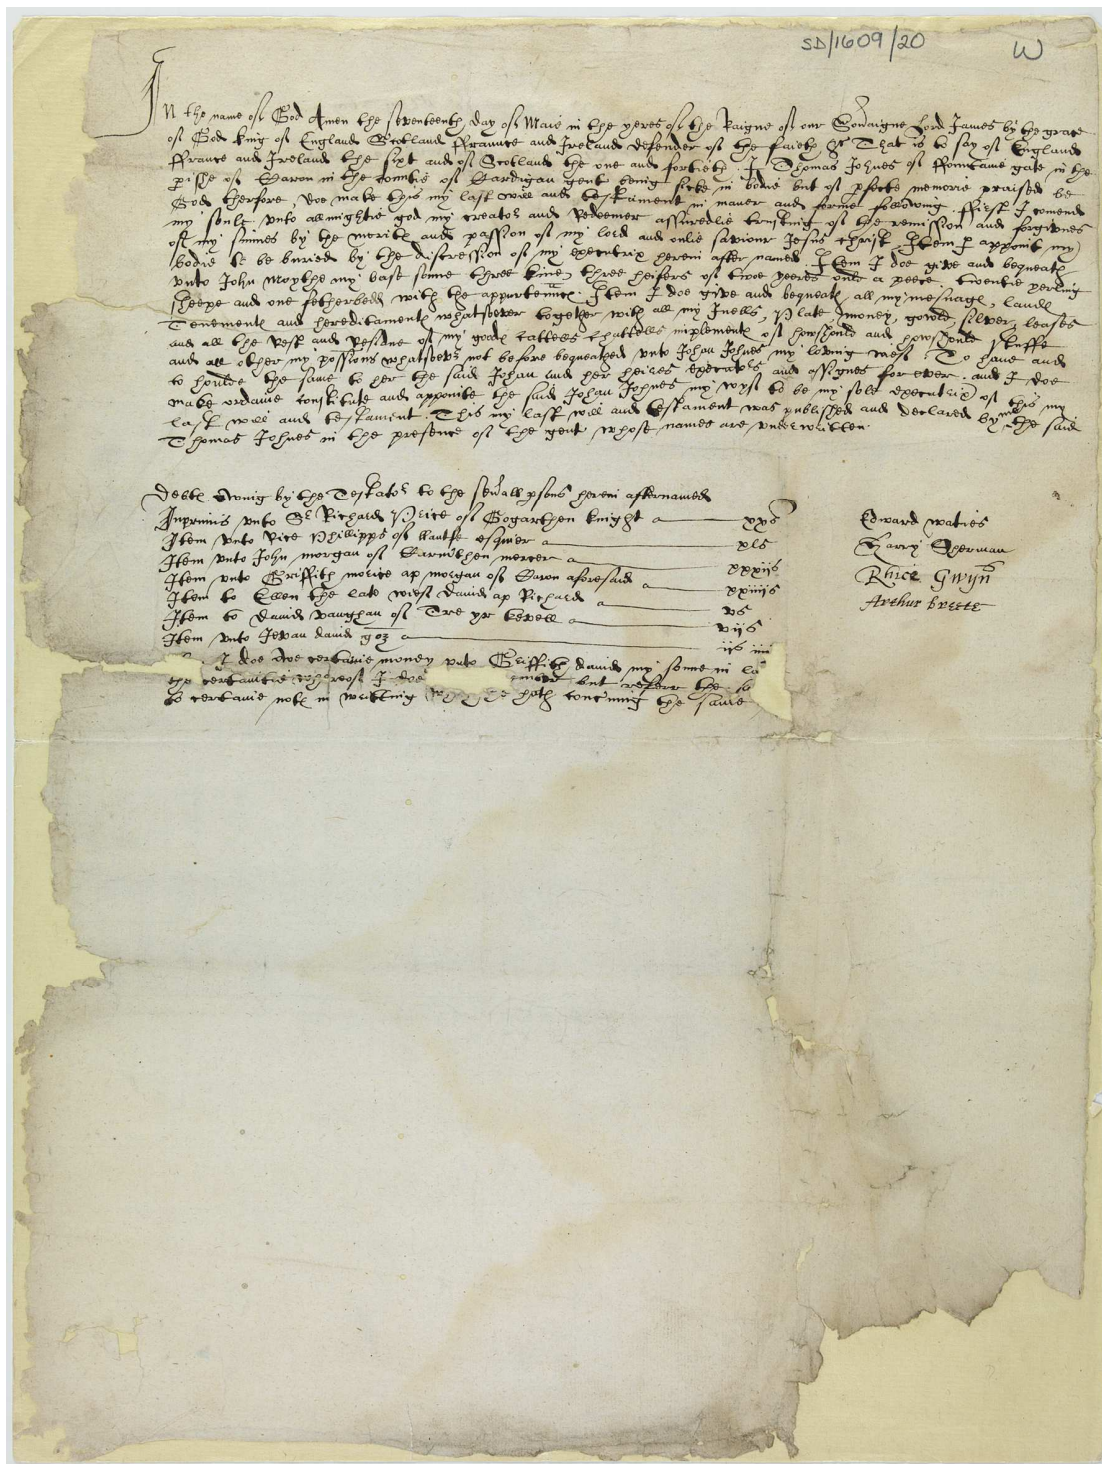 SD/1609/20 W
In the name of God Amen the seventeenth day of Maie in the yeres of the Raigne of our Sovaigne Lord James by the grace
of God king of England Scotland ffraunce and Ireland defender of the faieth &c That is to say of England
ffrance and Ireland the sixt and of Scotland the one and fortieth. I Thomas Johnes of ffountane gate in the
pishe of Caron in the Countie of Cardigan gent being sicke in bodie but of pfecte memorie praised be
God therfore, doe make this my last will and testament in maner and forme following. ffirst I comend
my soule unto allmightie god my creator and Redeemer assuredlie trusting of the remission and forgivnes
of my sinnes by the meritts and passion of my lord and onlie saviour Jesus Christ Item I appoint my
bodie to be buried by the discression of my executrix herein after named. Item I doe give and bequeath
unto John Moythe my base sonne three kine, three heifers of twoe yeeres ould a peece, twentie yerling
sheepe and one fetherbedd with the appurtennces. Item I doe give and bequeath all my mesuags, lands
Tenements and hereditaments whatsoever together with all my Juells, Plate, money, gowld, silver, leases
and all the Rest and Residue of my goods Cattells Chattells implements of howshould and howshould stuffe
and all other my possions whatsoevr not before bequeathed unto Johan Johnes my loving wief To have and
to houlde the same to her the said Johan and her heires executors and assignes for ever. and I doe
make ordaine constitute and appointe the said Johan Johnes my wyf to be my sole executrix of this my
last will and testament. This my last will and testament was published and declared by me the said
Thomas Johnes in the presence of the gent whose names are underwritten
Debts owing by the Testator to the sevall psons herein afternamed
Inprimis unto Sr Richard Price of Gogarthen knight xxs
Item unto Rice Phillipps of llantfe esquier xls
Item unto John morgan of Carmthen mercer xxxiis
Item unto Griffith morice ap morgan of Caron aforesaid xxiiiis
Item to Ellen the late wief david ap Richard vs
Item to david vaughan of Tre yr kevell viis
Item unto Jevan david goz iis iiii
I doe owe certaine money unto Griffith david my sonne in la
the certaintie whereof I doe but referr the
to certaine nots in writting he hath concning the same
Edward waties
Harry Sherman
Rhice Gwyn
Arthur Breete